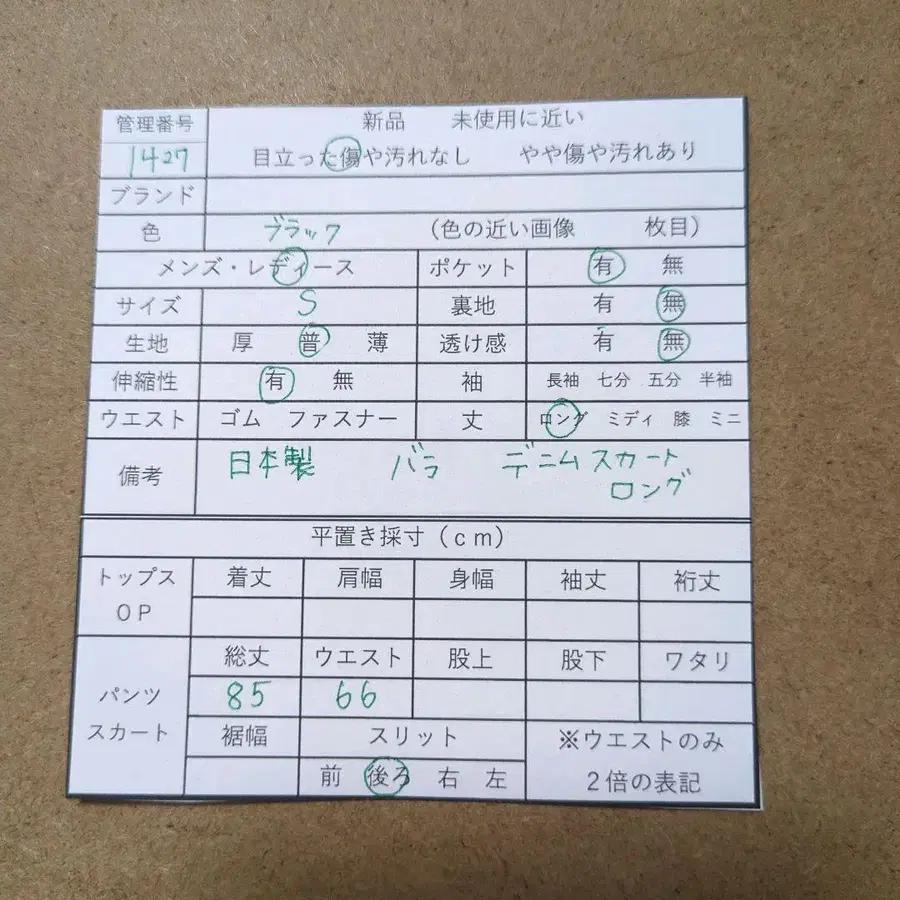 管理番号 新品 未使用に近い
1427 目立った傷や汚れなし やや傷や汚れあり
ブランド
色 ブラック (色の近い画像 枚目)
メンズ・レディース ポケット 有 無
サイズ S 裏地 有 無
生地 厚 普 薄 透け感 有 無
伸縮性 有 無 袖 長袖 七分 五分 半袖
ウエスト ゴム ファスナー 丈 ロング ミディ 膝 ミニ
備考 日本製 バラ デニムスカート
ロング
平置き採寸(cm)
トップス 着丈 肩幅 身幅 袖丈 裄丈
OP
総丈 ウエスト 股上 股下 ワタリ
パンツ 85 66
スカート 裾幅 スリット ※ウエストのみ
前 後ろ 右 左 2倍の表記